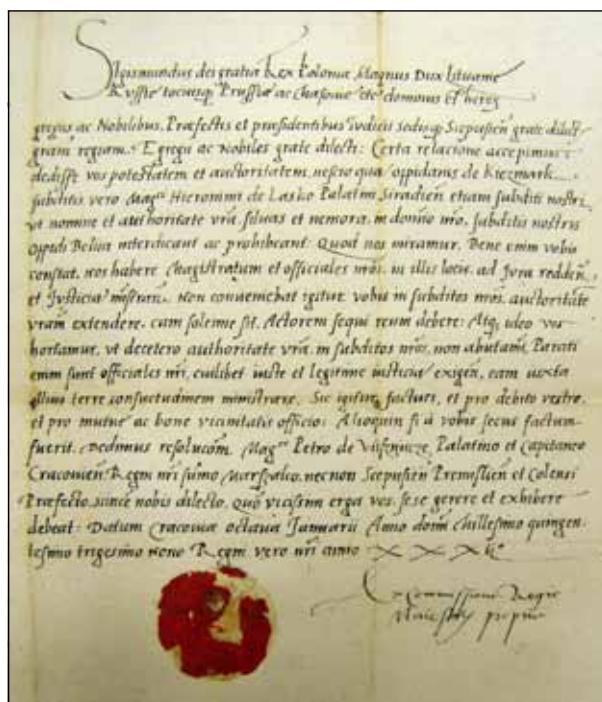 Sigismundus dei gratia Rex Polonie Magnus Dux Lituanie
Russie tociusq Prussie ac Masouie etc dominus et heres
gregijs ac Nobilibus, Præfectis et præsidentibus iudicij sedisq Scepusien grate dilect
gram regiam. Egregij ac Nobiles grate dilecti: Certa relacione accepimus
dedisse vos potestatem et auctoritatem, nescio qua oppidanis de Kiezmark
subditis vero Mag.ci Hieronimi de Lasko Palatini Siradien etiam subditi nostri
vt nomine et authoritate vrã siluas et nemora, in dominio nrõ, subditis nostris
Oppidi Belium interdicant ac prohibeant. Quod nos miramur. Bene enim vobis
constat, nos habere Magistratum et officiales nrõs, in illis locis, ad Jura redden
et Justiciã ministran. Non conueniebat igitur vobis in subditos nrõs, auctoritatẽ
vram extendere, cum solenne sit, Actorem sequi reum debere: Atq ideo vos
hortamur, vt decetero authoritate vrã, in subditos nrõs, non abutami. Parati
enim sunt officiales nri, cuilibet iuste et legitime iusticiã exigen, eam iuxta
illius terre consuetudinem ministrare. Sic igitur facturi, et pro debito vestro,
et pro mutue ac bone vicinitatis officio: Alioquin si à vobis secus factum
fuerit, Dedimus resolucõm, Mag.co Petro de Palatino et Capitaneo
Cracouien Regni nri sumo Marsalco, necnon Scepusien Premislien et Colensi
Præfecto, sincè nobis dilecto, quo vicissim erga vos, sese gerere et exhibere
debeat: Datum Cracouiæ octaua Januarij Anno domi Millesimo quingen
tesimo trigesimo nono Regni vero nri anno XXX
Ex commissione Regie
Maiestatis propria